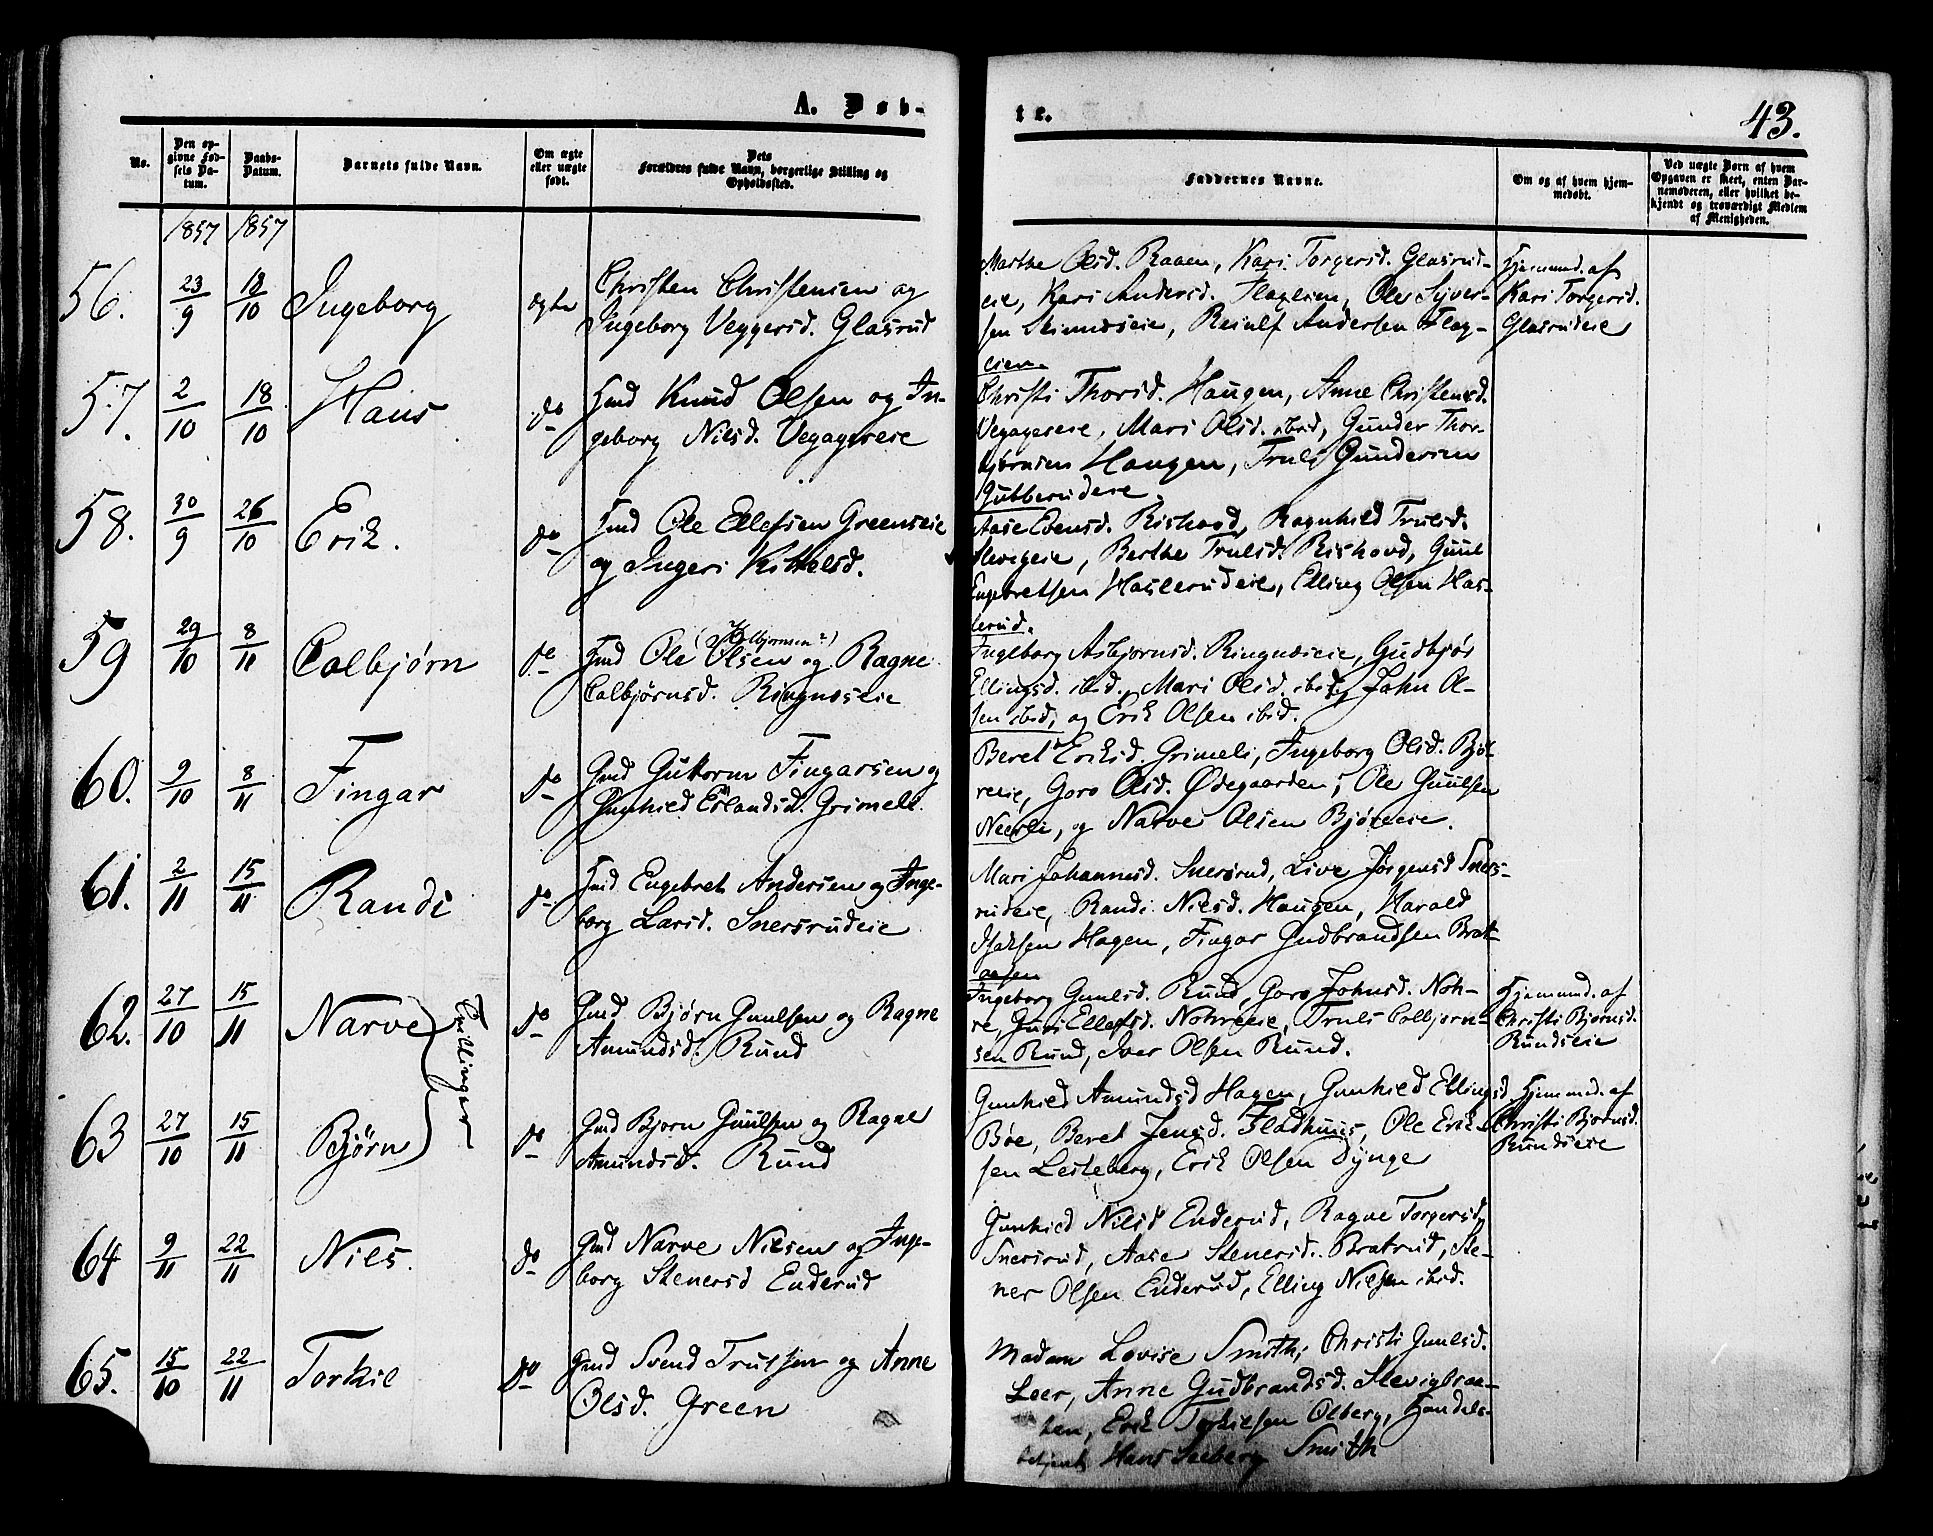 A. Døb-
te.
43.
No.
Den op-
givne Fød-
sels Da-
tum.
Daabs-
Datum.
Barnets fulde Navn.
Om ægte
eller uægte
født.
Dets
Forældres fulde Navn, borgerlige Stilling og
Opholdssted.
Faddernes Navne.
Om og af hvem hjem-
medøbt.
Ved uægte Børn af hvem
Opgaven er skeet, enten Bar-
nemoderen, eller hvilket be-
kjendt og troværdigt Medlem
af Menigheden.
1857 1857
56. 23/9 18/10 Ingeborg ægte
Christen Christensen og
Ingeborg Veggersd. Glasrud
Marthe Olsd. Raaen, Kari Torgersd. Glasrud-
eie, Kari Andersd. Flaglien, Ole Syver-
sen, Reiulf Andersen Flag-
lien.
Hjemmd. af
Kari Torgersd.
Glasrudeie
57. 2/10 18/10 Hans do
Hmd Knud Olsen og In-
geborg Nilsd. Veggereie
Christi Thorsd. Haugen, Anne Christensd.
Mari Olsd. ibid, Gunder Thor-
bjørnsen Haugen, Truls Gundersen
Gubberudeie
58. 30/9 26/10 Erik. do
Hmd Ole Ellefsen Greenseie
og Ingeri Kittelsd.
Aase Ebensd. Rishovd, Ragnhild Trulsd.
Slevigeie, Berthe Trulsd. Rishovd, Guul
Engebretsen Haslerudeie, Elling Olsen Has-
lerud.
59 29/10 8/11 Colbjørn do
(Kolbjørnsen?)
Hmd Ole Olsen og Ragne
Colbjørnsd. Ringnæseie
Ingeborg Asbjørnsd. Ringnæseie, Gudbjør
Ellingsd. ibid., Mari Olsd. ibid, John Ol-
sen ibid, og Erik Olsen ibid.
60. 9/10 8/11 Fingar do
Gmd Guttorm Fingarsen og
Gunhild Erlandsd. Grimeli.
Beret Eriksd. Grimeli, Ingeborg Olsd. Bjø-
reeie, Goro Olsd. Ødegaarden, Ole Guulsen
Neerli, og Narve Olsen Bjøreeie.
61. 2/11 15/11 Randi do
Hmd. Engebret Andersen og Inge-
borg Larsd. Snersrudeie
Mari Johannesd. Snersrud, Live Jørgensd Sners-
rudeie, Randi Nilsd. Haugen, Harald
Hagen, Fingar Gudbrandsen Brat-
aasen
62. 27/10 15/11 Narve do
Tvillinger
Gmd Bjørn Guulsen og Ragne
Amundsd. Rund
Ingeborg Guulsd. Rund, Goro Johnsd. Noh-
re, Guri Ellefsd. Nohreeie, Truls Colbjørn-
sen Rund, Iver Olsen Rund.
Hjemmd. af
Christi Bjørnsd.
Rundseie
63 27/10 15/11 Bjørn do
Gmd Bjørn Guulsen og Ragne
Amundsd. Rund
Gunhild Amundsd Hagen, Gunhild Ellingsd
Bøe, Beret Jensd. Fladhuus, Ole Erik-
sen Lesteberg, Erik Olsen Dynge
Hjemmd. af
Christi Bjørnsd.
Rundseie
64 9/11 22/11 Niels. do
Gmd Narve Nilsen og Inge-
borg Stenersd Enderud
Gunhild Nilsd Enderud, Ragne Torgersd.
Snersrud, Aase Stenersd. Bratrud, Ste-
ner Olsen Enderud, Elling Nilsen ibid.
65. 15/10 22/11 Torkil do
Gmd Svend Trulsen og Anne
Olsd. Green
Madam Lovise Smith, Christi Guulsd.
Leer, Anne Gudbrandsd. Slevigbraa-
ten, Erik Torkilsen Olberg, Handels-
betjent Hans Seeberg Smith